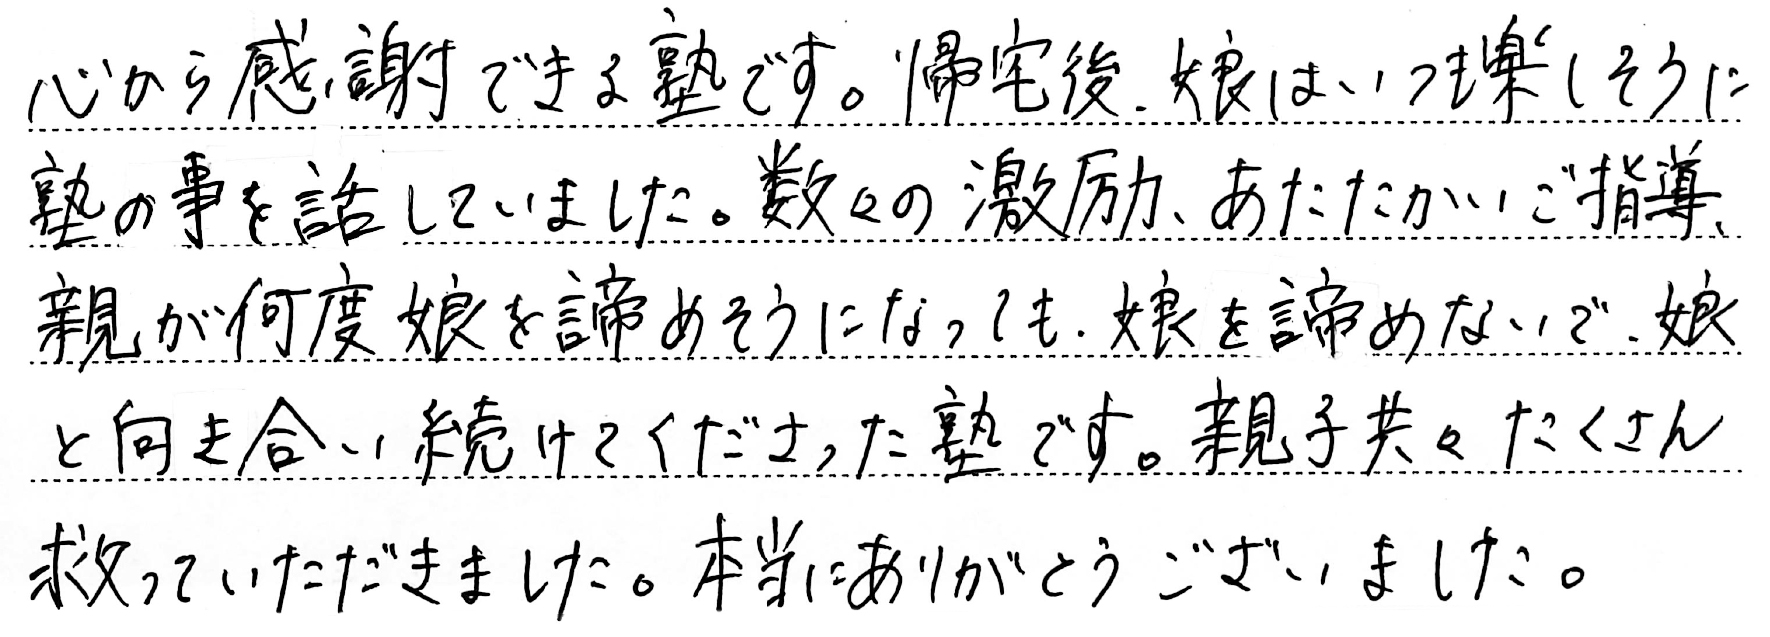 心から感謝できる塾です。帰宅後、娘はいつも楽しそうに
塾の事を話していました。数々の激励、あたたかいご指導、
親が何度娘を諦めそうになっても、娘を諦めないで、娘
と向き合い続けてくださった塾です。親子共々たくさん
救っていただきました。本当にありがとうございました。